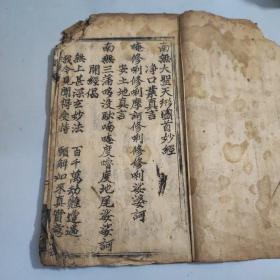 南無大聖天彿國首妙經
淨口業真言
唵修唎修唎摩訶修唎修唎娑婆訶
安土地真言
南無三滿哆沒馱喃唵度嚕度地尾娑婆訶
開經偈
無上甚深玄妙法 百千萬劫難遭遇
我今見聞得受持 願解如來真實意